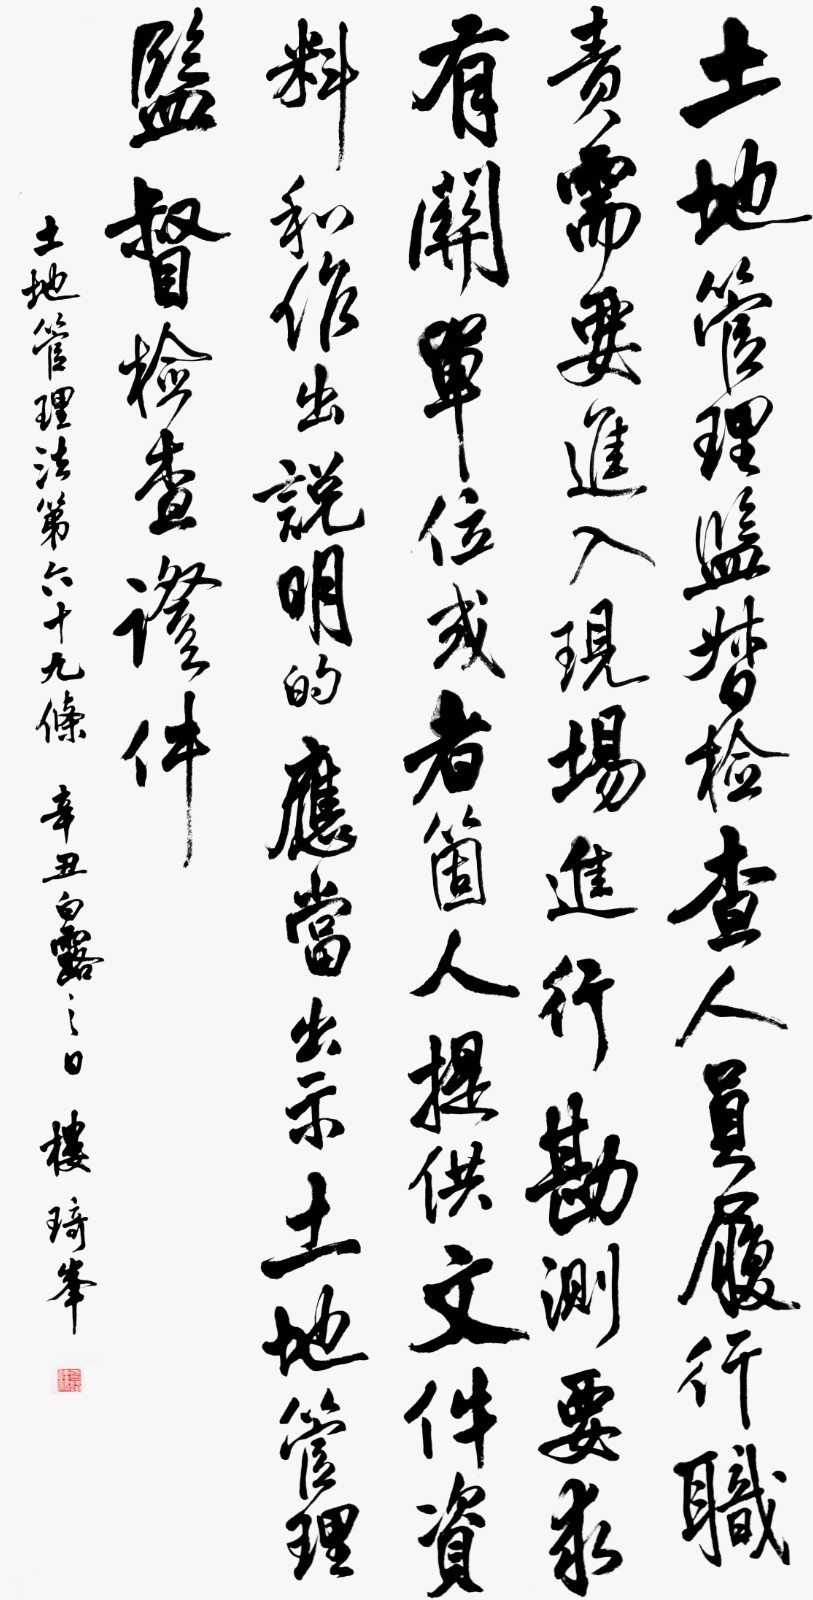 土地管理監督检查人員履行職
責需要進入現場進行勘測要求
有関單位或者箇人提供文件資
料和作出説明的應當出示土地管理
監督检查證件
土地管理法第六十九條 辛丑白露之日 樓琦峯